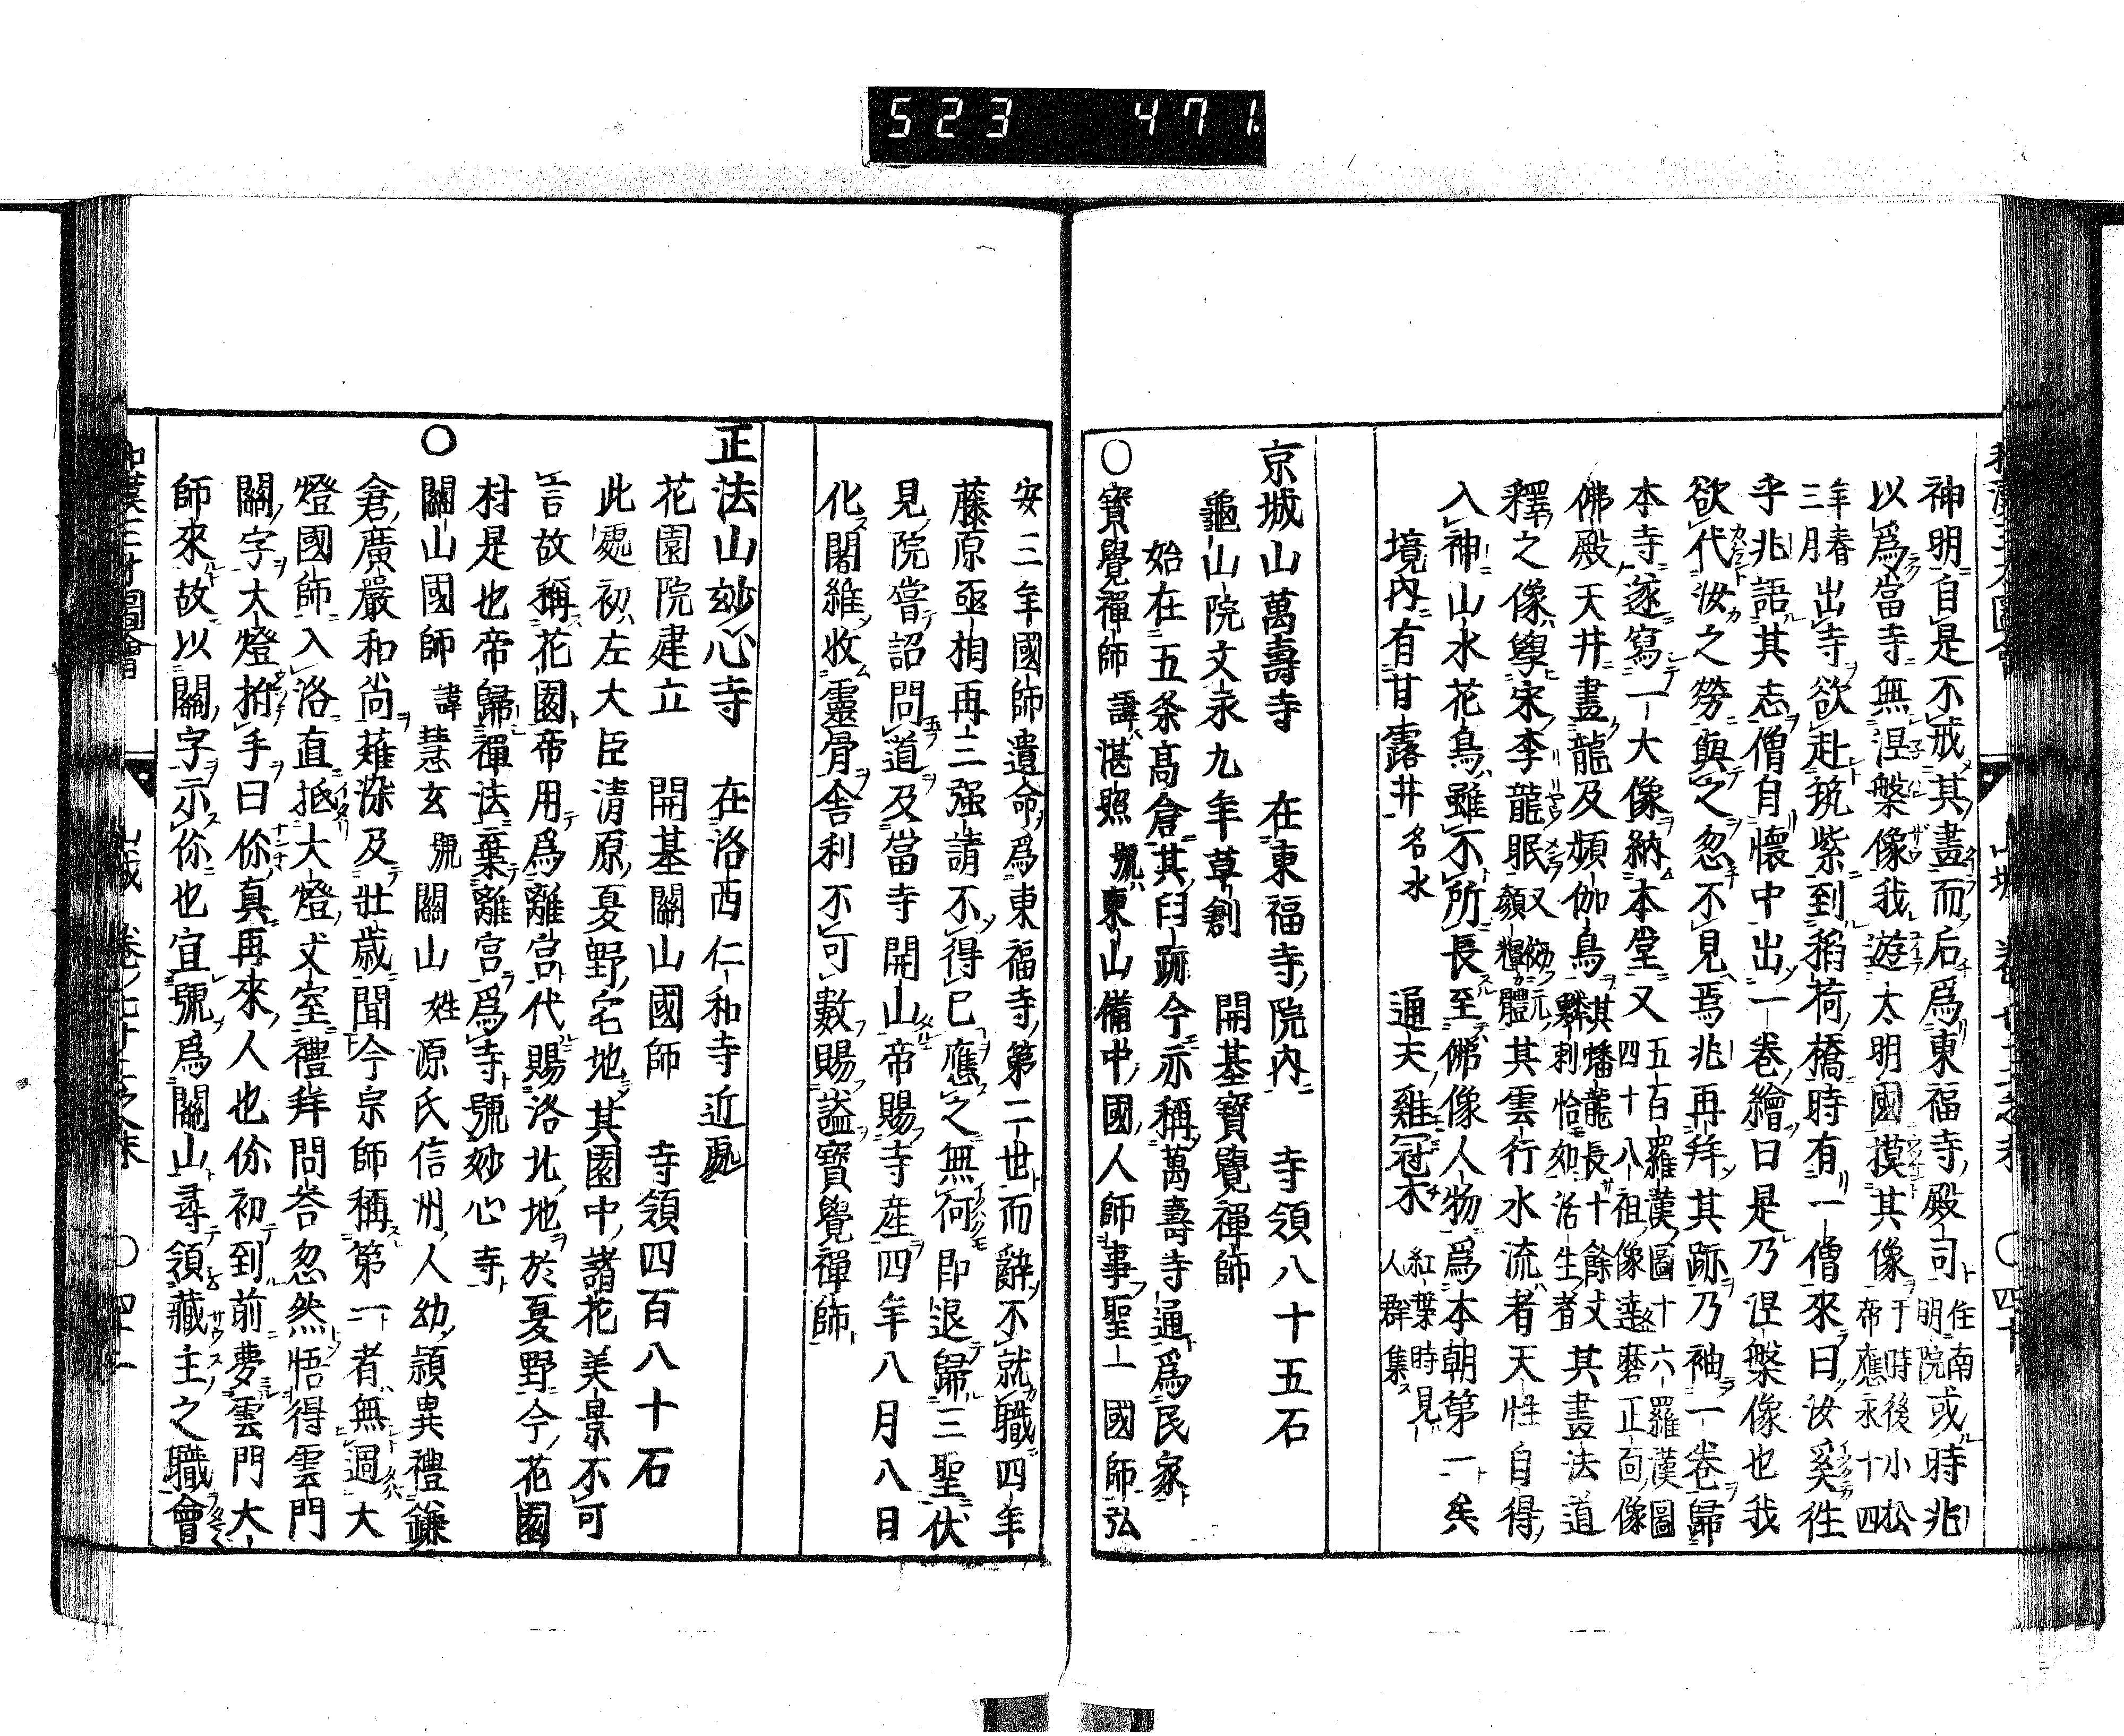 523 471.
神明自是不戒其畫而后爲東福寺殿司 住南明院 或時兆
以爲當寺無涅槃像我遊太明國摸其像 于時後小松帝應永十四
年春三月 出寺欲赴筑紫到稻荷橋時有一僧來曰汝奚徃
乎兆語其志僧自懷中出一巻繪曰是乃涅槃像也我
欲代汝之勞與之忽不見焉兆再拜其跡乃袖一巻歸
本寺遂寫一大像納本堂又 五百羅漢圖十六羅漢圖四十八祖像達磨正面像
佛殿天井畫龍及頻伽鳥 其蟠龍長十餘丈 其畫法道
釋之像學宋李龍眠又 顏輝 體其雲行水流者天性自得
入神山水花鳥雖不所長至佛像人物爲本朝第一矣
境內有甘露井 名水 通天雞冠木 紅葉時見人群集
京城山萬壽寺 在東福寺院內 寺領八十五石
龜山院文永九年草創 開基寶覺禪師
始在五条高倉其臼跡今亦稱萬壽寺通爲民家
○寶覺禪師 諱湛照 號東山備中國人師事聖一國師弘
安三年國師遺命爲東福寺第二世而辭不就職四年
藤原亟相再三强請不得已應之無何即退歸三聖伏
見院嘗詔問道及當寺開山帝賜寺産四年八月八日
化闍維收靈骨舎利不可數賜謚寶覺禪師
正法山妙心寺 在洛西仁和寺近處
花園院建立 開基關山國師 寺領四百八十石
此處初左大臣清原夏野宅地其園中諸花美景不可
言故稱花園帝用爲離宮代賜洛北地於夏野今花園
村是也帝歸禪法棄離宮爲寺號妙心寺
○關山國師 諱慧玄 號關山 姓源氏信州人幼頴異禮鎌
倉廣嚴和尚薙染及壯歳聞今宗師稱第一者無過大
燈國師入洛直抵大燈丈室禮拜問答忽然悟得雲門
關字大燈拊手曰你真再來人也你初到前夢雲門大
師來故以關字示你也宜號爲關山尋領藏主之職會